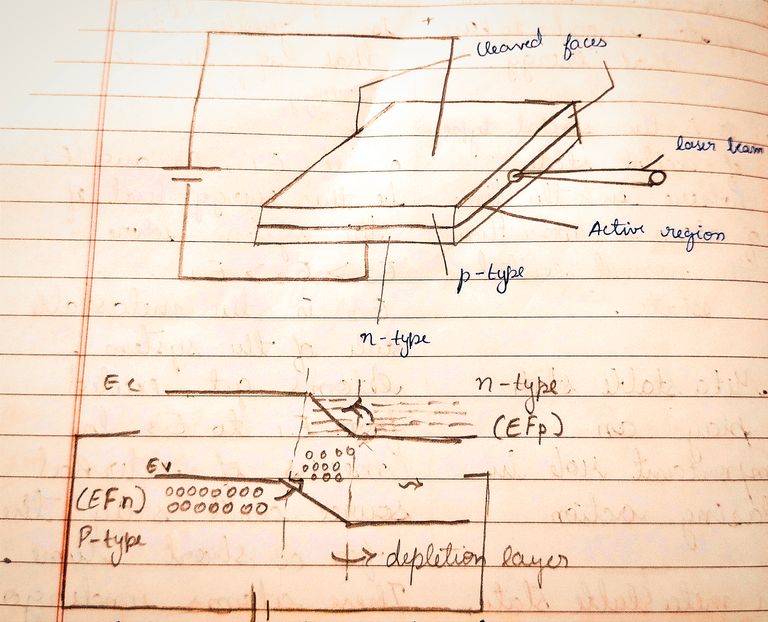 +
cleaved faces
laser beam
Active region
p-type
n-type
Ec
n-type
(EFp)
Ev
(EFn)
P-type
depletion layer